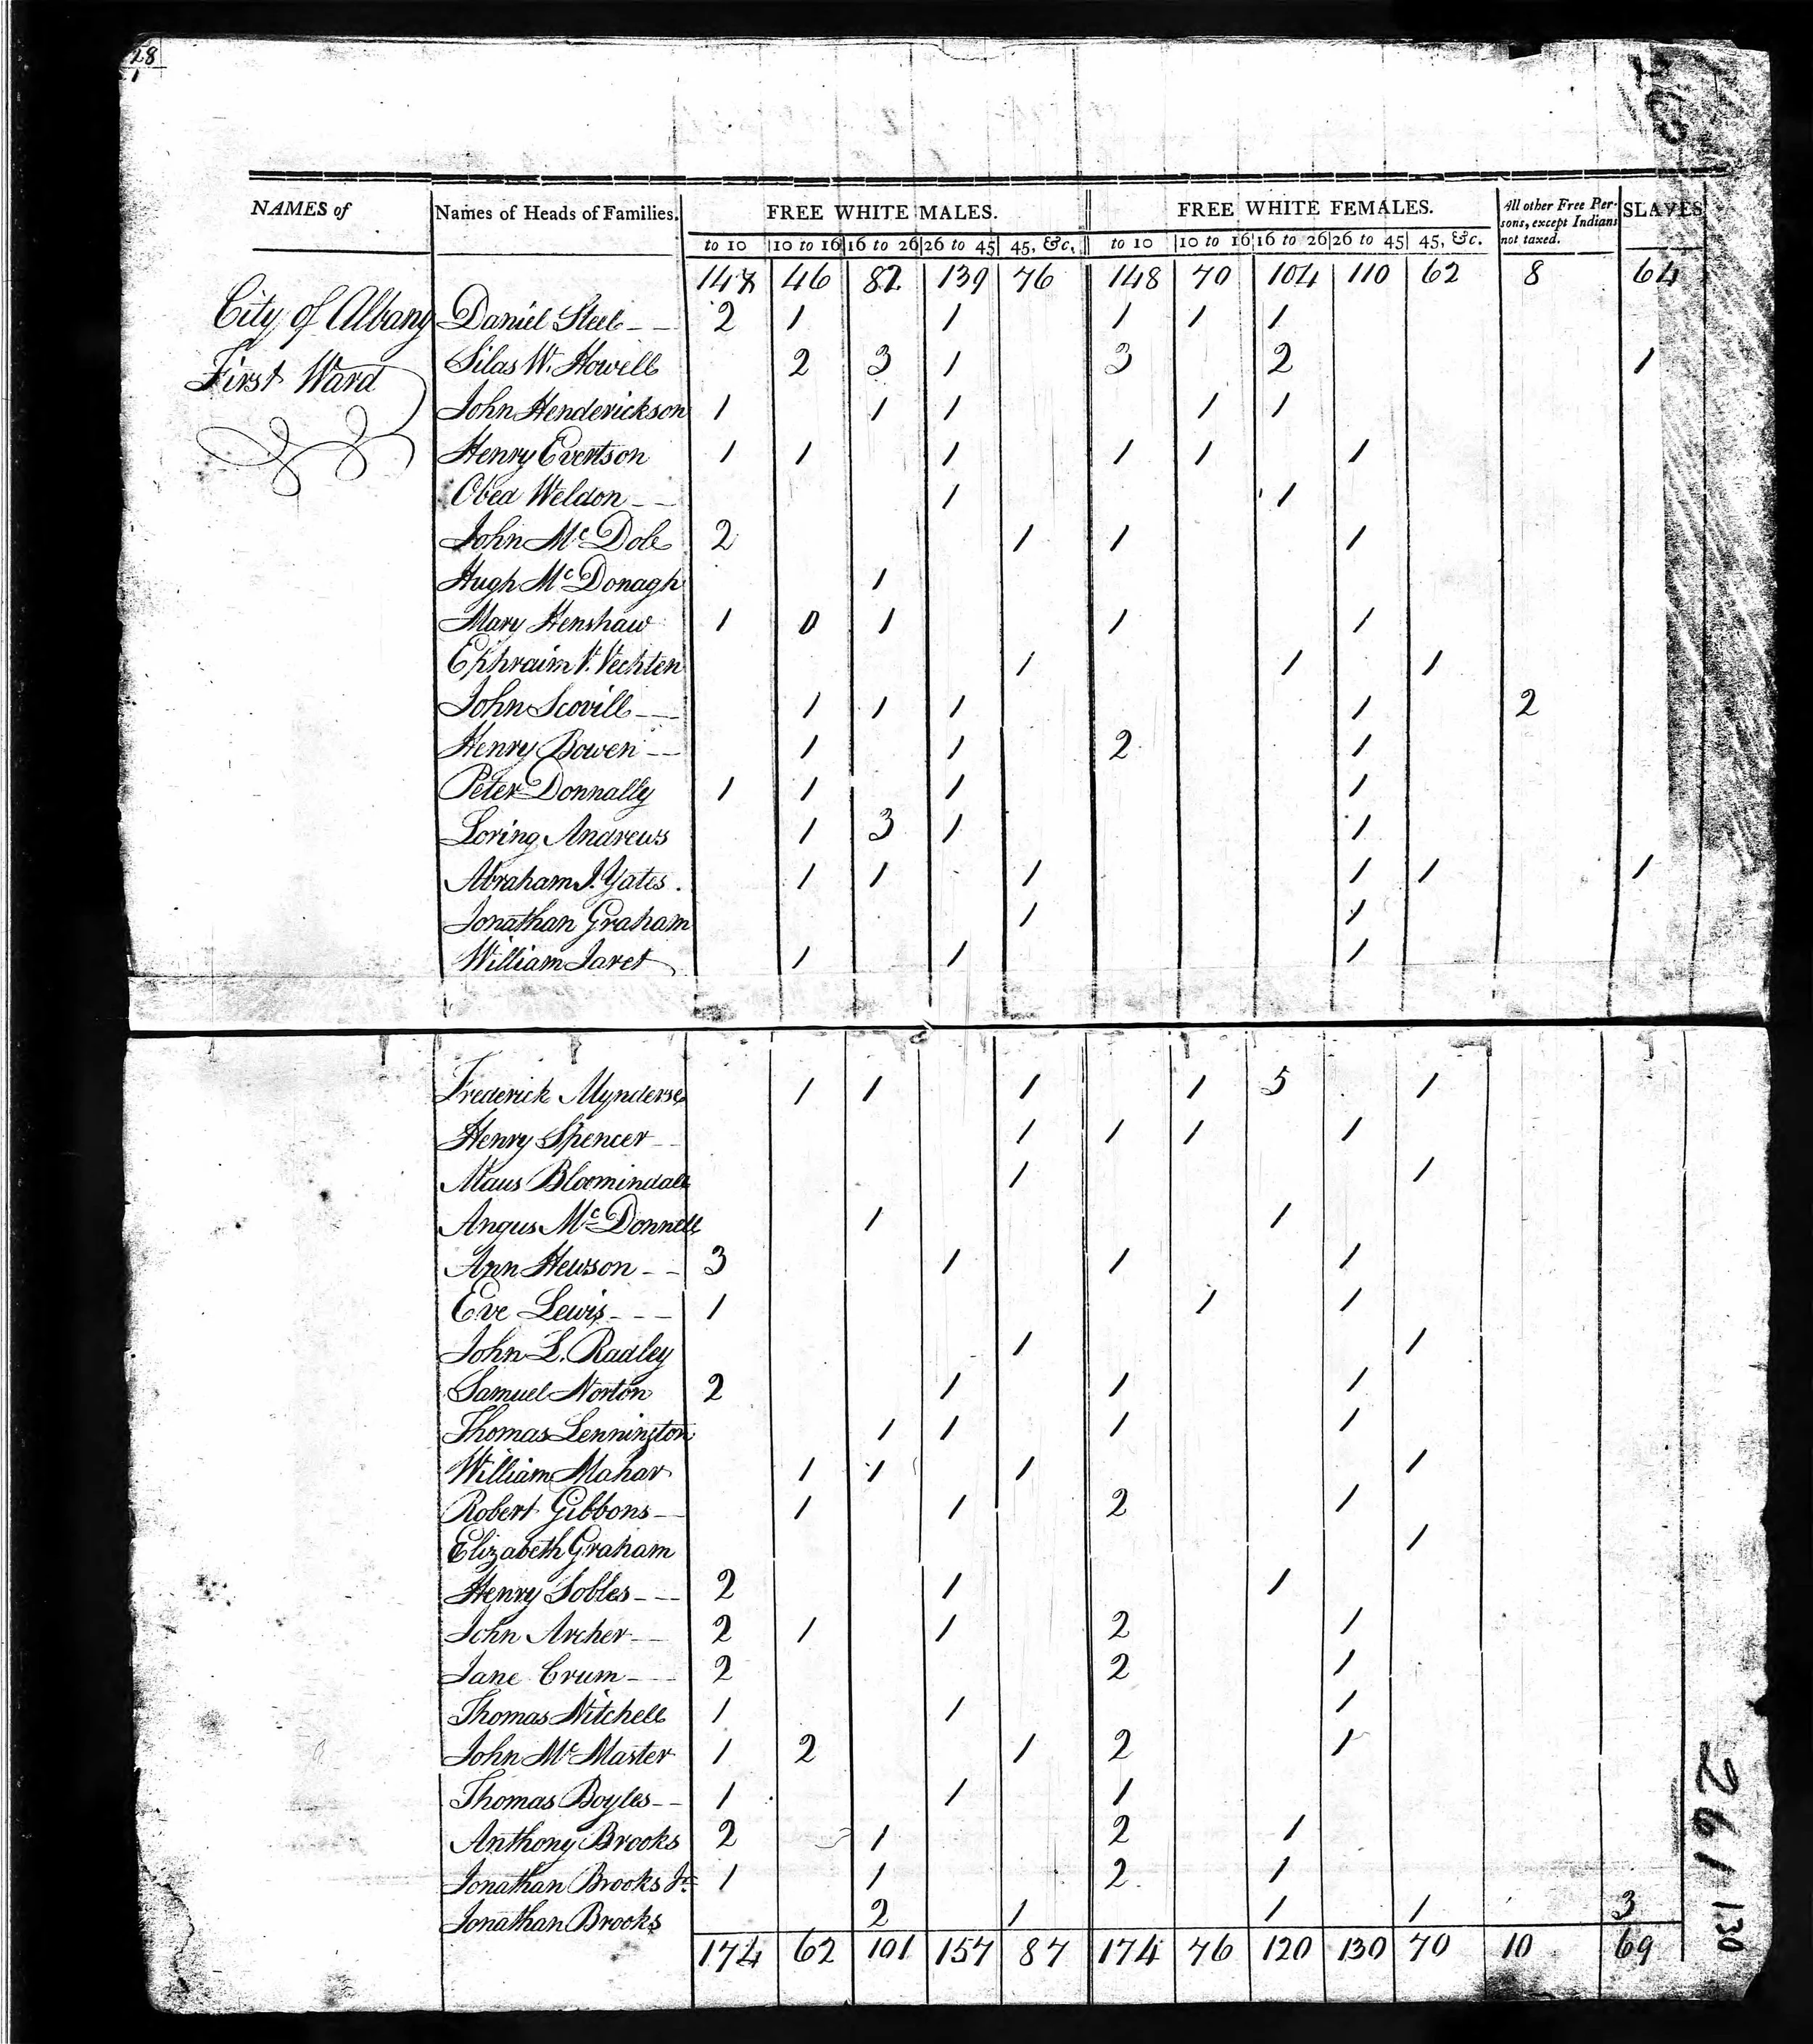 28
1
NAMES of Names of Heads of Families. FREE WHITE MALES. FREE WHITE FEMALES. All other Free Per-
sons, except Indians
not taxed. SLAVES
to 10 10 to 16 16 to 26 26 to 45 45, &c. to 10 10 to 16 16 to 26 26 to 45 45, &c.
147 46 82 139 76 148 70 104 110 62 8 64
City of Albany Daniel Steel 2 1 1 1 1 1
First Ward Silas W. Howell 2 3 1 3 2 1
John Henderickson 1 1 1 1 1
Henry Evertson 1 1 1 1 1 1
Obed Weldon 1 1
John Mc Dole 2 1 1 1
Hugh Mc Donagh 1
Mary Henshaw 1 0 1 1 1
Ephraim V. Vechten 1 1 1
John Scovill 1 1 1 1 2
Henry Bowen 1 1 2 1
Peter Donnally 1 1 1 1
Loring Andrews 1 3 1 1
Abraham J. Yates. 1 1 1 1 1 1
Jonathan Graham 1 1
William Jaret 1 1 1
Frederick Mynderse 1 1 1 1 5 1
Henry Spencer 1 1 1 1
Maus Bloomindall 1 1
Angus Mc Donnell 1 1
Ann Hewson 3 1 1 1
Eve Lewis 1 1 1
John L. Radley 1 1
Samuel Norton 2 1 1 1
Thomas Lennington 1 1 1 1
William Mahar 1 1 1 1
Robert Gibbons 1 1 2 1
Elizabeth Graham 1
Henry Sobles 2 1 1
John Archer 2 1 1 2 1
Jane Crum 2 2 1
Thomas Mitchell 1 1 1
John Mc Master 1 2 1 2 1
Thomas Boyles 1 1 1
Anthony Brooks 2 1 2 1
Jonathan Brooks Jr. 1 1 2 1
Jonathan Brooks 2 1 1 1 3
174 62 101 157 87 174 76 120 130 70 10 69
261
130